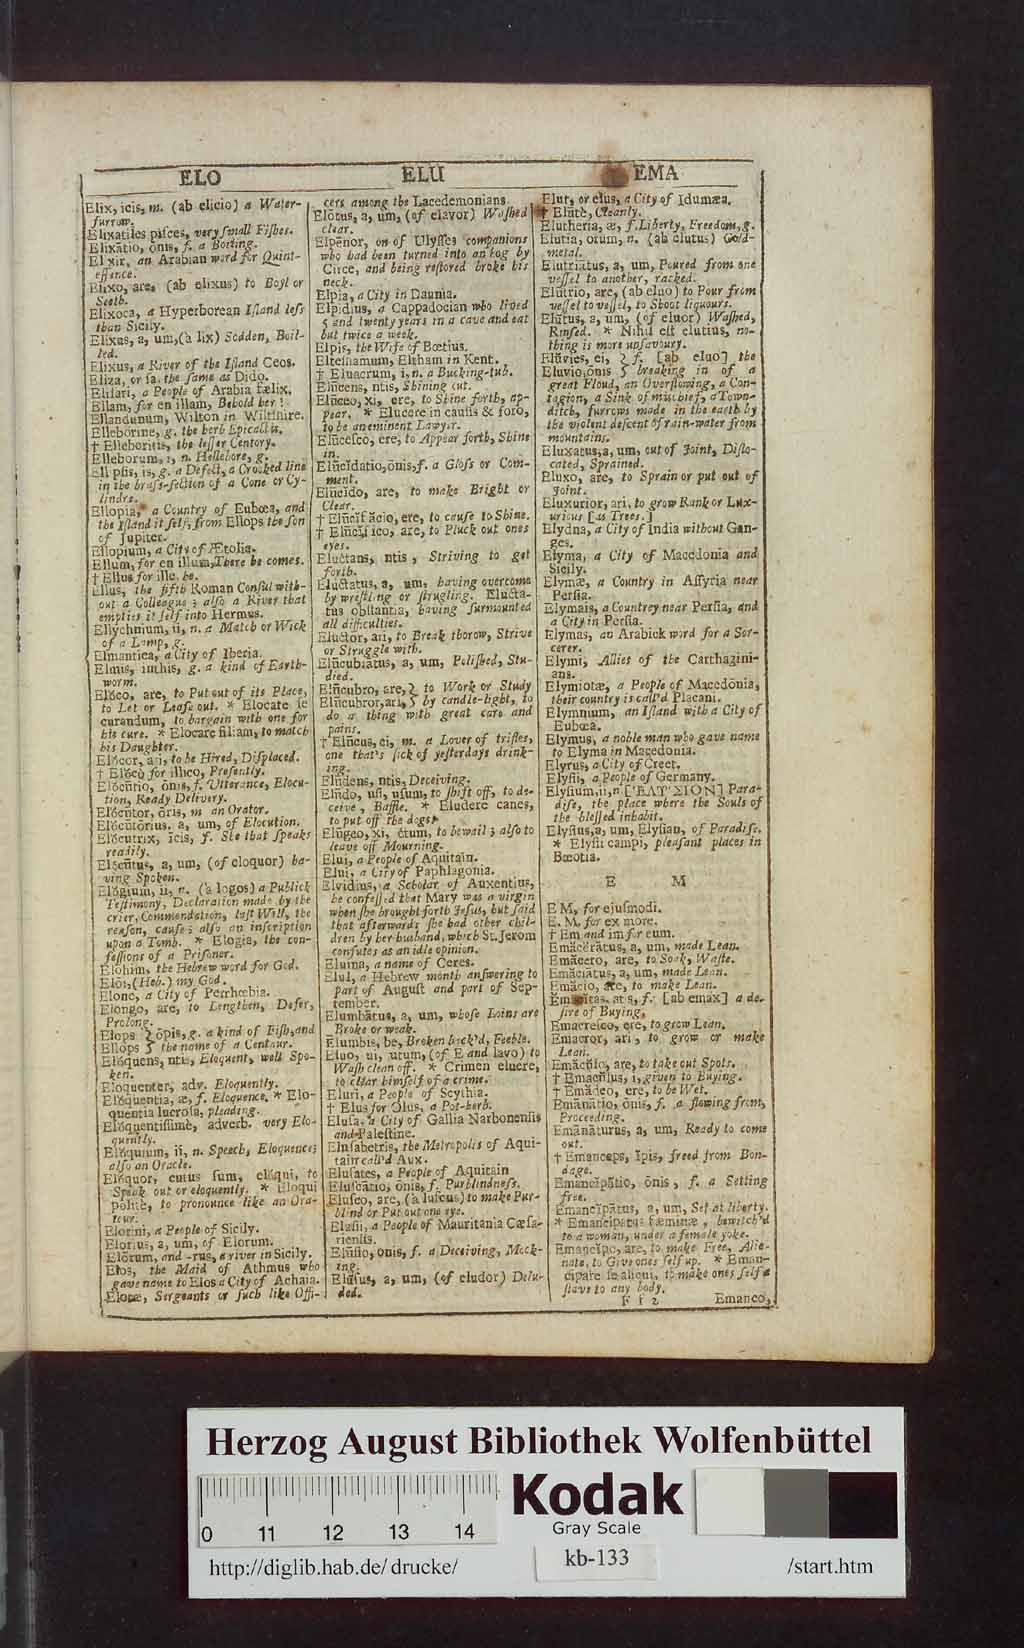 ELO ELU EMA
Elix, icis, m. (ab elicio) a Water-
furrow.
Elixatiles pisces, very small Fishes.
Elixātio, ōnis, f. a Boiling.
Elixir, an Arabian word for Quint-
essence.
Elixo, are, (ab elixus) to Boyl or
Seeth.
Elixoca, a Hyperborean Island less
than Sicily.
Elixus, a, um, (à lix) Sodden, Boil-
led.
Elixus, a River of the Island Ceos.
Eliza, or sa. the same as Dido.
Elisari, a People of Arabia fælix.
Ellam, for en illam, Behold her!
Ellandunum, Wilton in Wiltshire.
Elleborine, g. the herb Epicactis.
† Elleboritis, the lesser Centory.
Elleborum, i, n. Hellebore, g.
Ellipsis, is, g. a Defect, a Crooked line
in the brass-section of a Cone or Cy-
lindre.
Ellopia, a Country of Eubœa, and
the Island it self, from Ellops the son
of Jupiter.
Ellopium, a City of Ætolia.
Ellum, for en illum, There he comes.
† Ellus for ille, he.
Ellus, the fifth Roman Consul with-
out a Colleague; also a River that
empties it self into Hermus.
Ellychnium, ii, n. a Match or Wick
of a Lamp, g.
Elmantica, a City of Iberia.
Elmis, inthis, g. a kind of Earth-
worm.
Elŏco, are, to Put out of its Place,
to Let or Lease out. * Elocate se
curandum, to bargain with one for
his cure. * Elocare filiam, to match
his Daughter.
Elŏcor, ari, to be Hired, Displaced.
† Elŏcò for illico, Presently.
Elŏcūtio, ōnis, f. Utterance, Elocu-
tion, Ready Delivery.
Elŏcūtor, ōris, m an Orator.
Elŏcūtōrius, a, um, of Elocution.
Elŏcūtrix, īcis, f. She that speaks
readily.
Elŏcūtus, a, um, (of eloquor) ha-
ving Spoken.
Elŏgium, ii, n. (à logos) a Publick
Testimony, Declaration made by the
crier, Commendation, last Will, the
reason, cause; also an inscription
upon a Tomb. * Elogia, the con-
fessions of a Prisoner.
Elohim, the Hebrew word for God.
Eloi, (Heb.) my God.
Elone, a City of Perrhœbia.
Elongo, are, to Lengthen, Defer,
Prolong.
Elops } ŏpis, g. a kind of Fish, and
Ellops } the name of a Centaur.
Elŏquens, ntis, Eloquent, well Spo-
ken.
Eloquenter, adv. Eloquently.
Elŏquentia, æ, f. Eloquence. * Elo-
quentia lucrosa, pleading.
Elŏquentissimè, adverb. very Elo-
quently.
Elŏquium, ii, n. Speech, Eloquence;
also an Oracle.
Elŏquor, cutus sum, elŏqui, to
Speak out or eloquently. * Eloqui
politè, to pronounce like an Ora-
tour.
Elorini, a People of Sicily.
Elorius, a, um, of Elorum.
Elōrum, and -rus, a river in Sicily.
Elos, the Maid of Athmus who
gave name to Elos a City of Achaia.
Elotæ, Sergeants or such like Offi-
cers among the Lacedemonians
Elōtus, a, um, (of elavor) Washed
clear.
Elpēnor, on of Ulysses companions
who had been turned into an hog by
Circe, and being restored broke his
neck.
Elpia, a City in Daunia.
Elpidius, a Cappadocian who lived
5 and twenty years in a cave and eat
but twice a week.
Elpis, the Wife of Bœtius.
Elteshamum, Eltham in Kent.
† Eluacrum, i, n. a Bucking-tub.
Elūcens, ntis, Shining out.
Elūceo, xi, ere, to Shine forth, ap-
pear. * Elucere in causis & foro,
to be an eminent Lawyer.
Elūcesco, ere, to Appear forth, Shine
in.
Elūcĭdatio, ōnis, f. a Gloss or Com-
ment.
Elūcĭdo, are, to make Bright or
Clear.
† Elūcĭfăcio, ere, to cause to Shine.
† Elūcĭfico, are, to Pluck out ones
eyes.
Eluctans, ntis, Striving to get
forth.
Eluctatus, a, um, having overcome
by wrestling or strugling. Elucta-
tus obstantia, having surmounted
all difficulties.
Eluctor, ari, to Break thorow, Strive
or Struggle with.
Elūcubratus, a, um, Polished, Stu-
died.
Elūcubro, are, } to Work or Study
Elūcubror, ari, } by candle-light, to
do a thing with great care and
pains.
† Elūcus, ci, m. a Lover of trifles,
one that's sick of yesterdays drink-
ing.
Elūdens, ntis, Deceiving.
Elūdo, usi, usum, to shift off, to de-
ceive, Baffle. * Eludere canes,
to put off the dogs.
Elūgeo, xi, ctum, to bewail; also to
leave off Mourning.
Elui, a People of Aquitain.
Elui, a City of Paphlagonia.
Elvidius, a Scholar of Auxentius,
he confessed that Mary was a virgin
when she brought forth Jesus, but said
that afterwards she had other chil-
dren by her husband, which St. Jerom
confutes as an idle opinion.
Eluina, a name of Ceres.
Elul, a Hebrew month answering to
part of August and part of Sep-
tember.
Elumbātus, a, um, whose Loins are
Broke or weak.
Elumbis, be, Broken back'd, Feeble.
Eluo, ui, utum, (of E and lavo) to
Wash clean off. * Crimen eluere,
to clear himself of a crime.
Eluri, a People of Scythia.
† Elus for Olus, a Pot-herb.
Elusa, a City of Gallia Narbonensis
and Palestine.
Elusabetris, the Metropolis of Aqui-
tain call'd Aux.
Elusates, a People of Aquitain
Eluscātio, ōnis, f. Purblindness.
Elusco, are, (à luscus) to make Pur-
blind or Put out one eye.
Elusii, a People of Mauritania Cæsa-
riensis.
Elūsio, onis, f. a Deceiving, Mock-
ing.
Elūsus, a, um, (of eludor) Delu-
ded.
Elut, or elus, a City of Idumæa.
† Elūtè, Cleanly.
Elutheria, æ, f. Liberty, Freedom, g.
Elutia, orum, n. (ab elutus) Gold-
metal.
Elutriatus, a, um, Poured from one
vessel to another, racked.
Elūtrio, are, (ab eluo) to Pour from
vessel to vessel, to Shoot liquours.
Elūtus, a, um, (of eluor) Washed,
Rinsed. * Nihil est elutius, no-
thing is more unsavoury.
Elŭvies, ei, } f. [ab eluo] the
Eluvio, onis } breaking in of a
great Floud, an Overflowing, a Con-
tagion, a Sink of mischief, a Town-
ditch, furrows made in the earth by
the violent descent of rain-water from
mountains.
Eluxatus, a, um, out of Joint, Dislo-
cated, Sprained.
Eluxo, are, to Sprain or put out of
Joint.
Eluxurior, ari, to grow Rank or Lux-
urious [as Trees.]
Elydna, a City of India without Gan-
ges.
Elyma, a City of Macedonia and
Sicily.
Elymæ, a Country in Assyria near
Persia.
Elymais, a Countrey near Persia, and
a City in Persia.
Elymas, an Arabick word for a Sor-
cerer.
Elymi, Allies of the Carthagini-
ans.
Elymiotæ, a People of Macedonia,
their country is call'd Placani.
Elymnium, an Island with a City of
Eubœa.
Elymus, a noble man who gave name
to Elyma in Macedonia.
Elyrus, a City of Creet.
Elysii, a People of Germany.
Elysium, ii, n [ἘΛΎΣΙΟΝ] Para-
dise, the place where the Souls of
the blessed inhabit.
Elysius, a, um, Elysian, of Paradise.
* Elysii campi, pleasant places in
Bœotia.
E M
E M, for ejusmodi.
E. M. for ex more.
† Em and im for eum.
Emăcĕrātus, a, um, made Lean.
Emăcero, are, to Soak, Waste.
Emăciātus, a, um, made Lean.
Emăcio, are, to make Lean.
Emacitas, atis, f. [ab emax] a de-
sire of Buying.
Emacresco, ere, to grow Lean.
Emacror, ari, to grow or make
Lean.
Emăcŭlo, are, to take out Spots.
† Emacŭlus, i, given to Buying.
† Emădeo, ere, to be Wet.
Emānātio, ōnis, f. a flowing from,
Proceeding.
Emānāturus, a, um, Ready to come
out.
† Emanceps, ĭpis, freed from Bon-
dage.
Emancĭpātio, ōnis, f. a Setting
free.
Emancĭpātus, a, um, Set at liberty.
* Emancipatus fæminæ, bewitch'd
to a woman, under a female yoke.
Emancĭpo, are, to make Free, Alie-
nate, to Give ones self up. * Eman-
cipare se alicui, to make ones self a
slave to any body.
F f 2 Emanco,
Herzog August Bibliothek Wolfenbüttel
Kodak
Gray Scale
0 11 12 13 14
kb-133
http://diglib.hab.de/drucke/ /start.htm